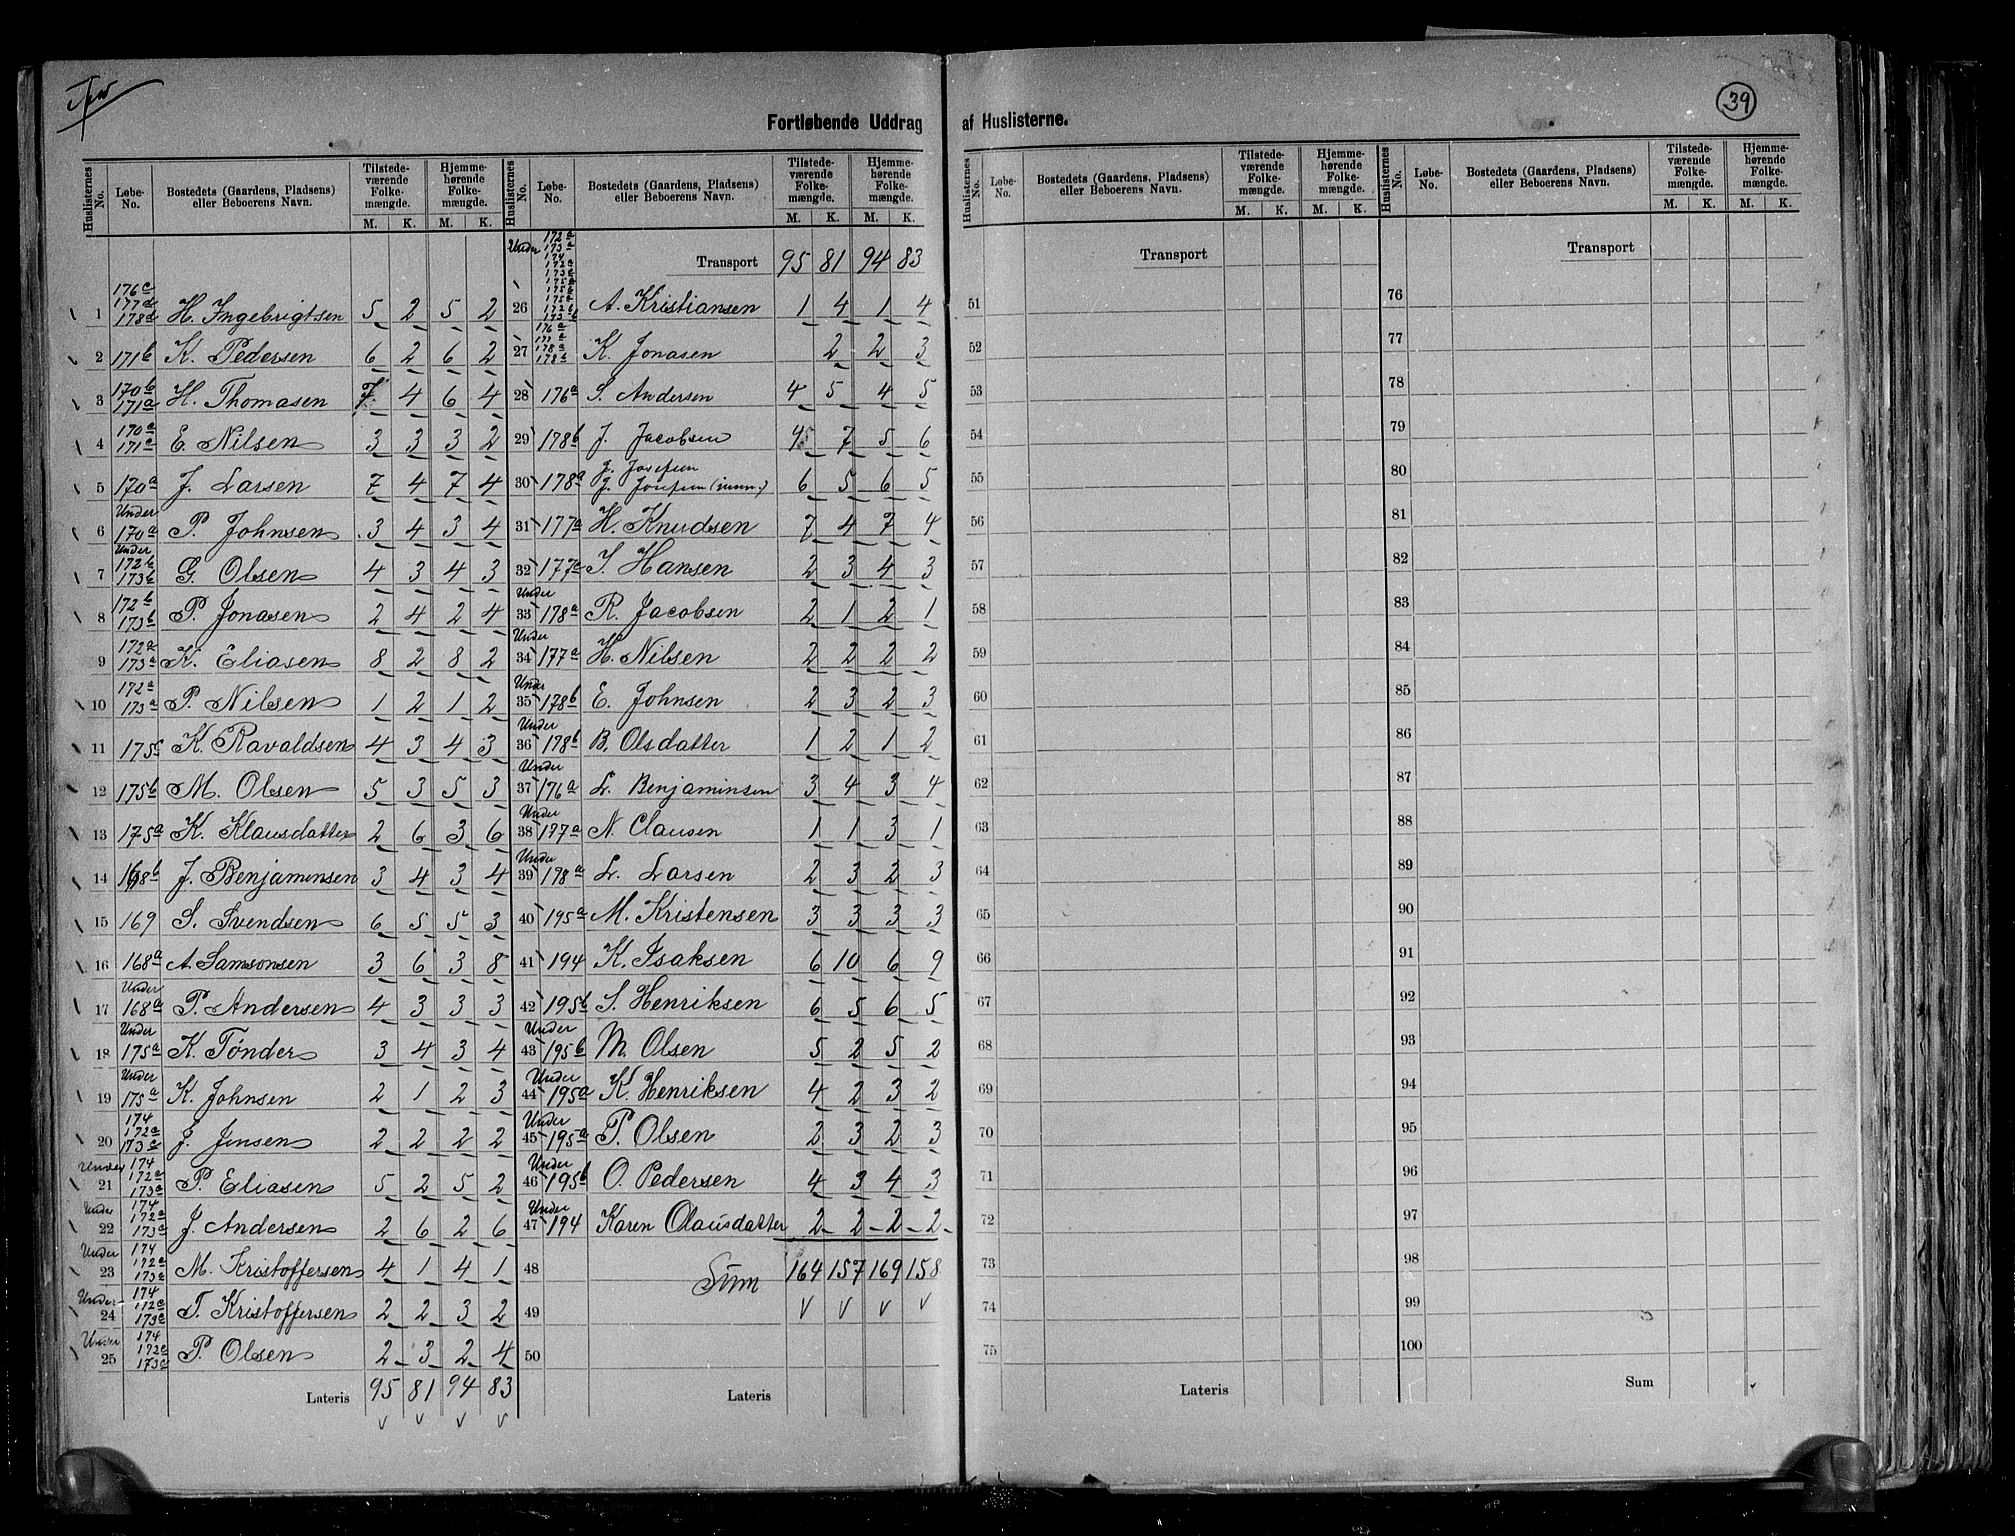 39
Fortløbende Uddrag af Huslisterne.
Huslisternes No. Løbe-No. Bostedets (Gaardens, Pladsens) eller Beboerens Navn. Tilstede-værende Folke-mængde. M. K. Hjemme-hørende Folke-mængde. M. K.
1 176c 177d 178d H. Ingebrigtsen 5 2 5 2
2 171b K. Pedersen 6 2 6 2
3 170b 171a H. Thomasen 7 4 6 4
4 170a 171c E. Nilsen 3 3 3 2
5 170a J. Larsen 7 4 7 4
6 Under 170a P. Johnsen 3 4 3 4
7 Under 172b 173b G. Olsen 4 3 4 3
8 172b 173b P. Jonasen 2 4 2 4
9 172a 173a K. Eliasen 8 2 8 2
10 172a 173a P. Nilsen 1 2 1 2
11 175c K. Ravaldsen 4 3 4 3
12 175b M. Olsen 5 3 5 3
13 175a K. Klausdatter 2 6 3 6
14 168b J. Benjaminsen 3 4 3 4
15 169 S. Svendsen 6 5 5 3
16 168a A. Samsonsen 3 6 3 8
17 Under 168a P. Andersen 4 3 3 3
18 Under 175a K. Tønder 3 4 3 4
19 Under 175a K. Johnsen 2 1 2 3
20 174 172a 173c J. Jensen 2 2 2 2
21 Under 174 172a 173a P. Eliasen 5 2 5 2
22 Under 174 172a 173a J. Andersen 2 6 2 6
23 Under 174 172a 173a M. Kristoffersen 4 1 4 1
24 Under 174 172c 173c T. Kristoffersen 2 2 3 2
25 Under 174 172c 173c P. Olsen 2 3 2 4
Lateris 95 81 94 83
Huslisternes No. Løbe-No. Bostedets (Gaardens, Pladsens) eller Beboerens Navn. Tilstede-værende Folke-mængde. M. K. Hjemme-hørende Folke-mængde. M. K.
Transport 95 81 94 83
26 Under 172a 173a 174 172a 173c 175a 175b 175a 172b 173b A. Kristiansen 1 4 1 4
27 176a 177a 178a 178b K. Jonasen 2 2 3
28 176a S. Andersen 4 5 4 5
29 178b J. Jacobsen 4 7 5 6
30 178a J. Josefsen J. Josefsen 6 5 6 5
31 177a H. Knudsen 7 4 7 4
32 177a I. Hansen 2 3 4 3
33 Under 178a R. Jacobsen 2 1 2 1
34 Under 177a H. Nilsen 2 2 2 2
35 Under 178b E. Johnsen 2 3 2 3
36 Under 178b B. Olsdatter 1 2 1 2
37 Under 176a L. Benjaminsen 3 4 3 4
38 Under 177a N. Clausen 1 1 3 1
39 Under 178a L. Larsen 2 3 2 3
40 195a M. Kristensen 3 3 3 3
41 194 K. Isaksen 6 10 6 9
42 195b S. Henriksen 6 5 6 5
43 Under 195b M. Olsen 5 2 5 2
44 Under 195a K. Henriksen 4 2 3 2
45 Under 195a P. Olsen 2 3 2 3
46 Under 195b O. Pedersen 4 3 4 3
47 Under 194 Karen Olausdatter 2 2 2 2
48 Sum 164 157 169 158
49
50
Lateris
Huslisternes No. Løbe-No. Bostedets (Gaardens, Pladsens) eller Beboerens Navn. Tilstede-værende Folke-mængde. M. K. Hjemme-hørende Folke-mængde. M. K.
Transport
51
52
53
54
55
56
57
58
59
60
61
62
63
64
65
66
67
68
69
70
71
72
73
74
75
Lateris
Huslisternes No. Løbe-No. Bostedets (Gaardens, Pladsens) eller Beboerens Navn. Tilstede-værende Folke-mængde. M. K. Hjemme-hørende Folke-mængde. M. K.
Transport
76
77
78
79
80
81
82
83
84
85
86
87
88
89
90
91
92
93
94
95
96
97
98
99
100
Sum